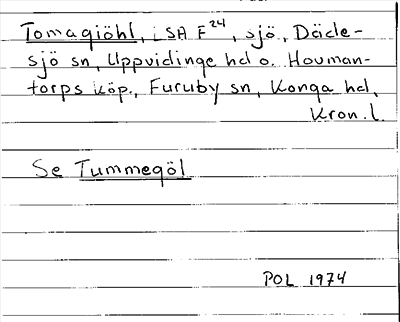 Tomagiöhl, LSA F24, sjö, Däde-
sjö sn, Uppvidinge hd o. Hovman-
torps köp., Furuby sn, Konga hd,
Kron. l.
Se Tummegöl
POL 1974